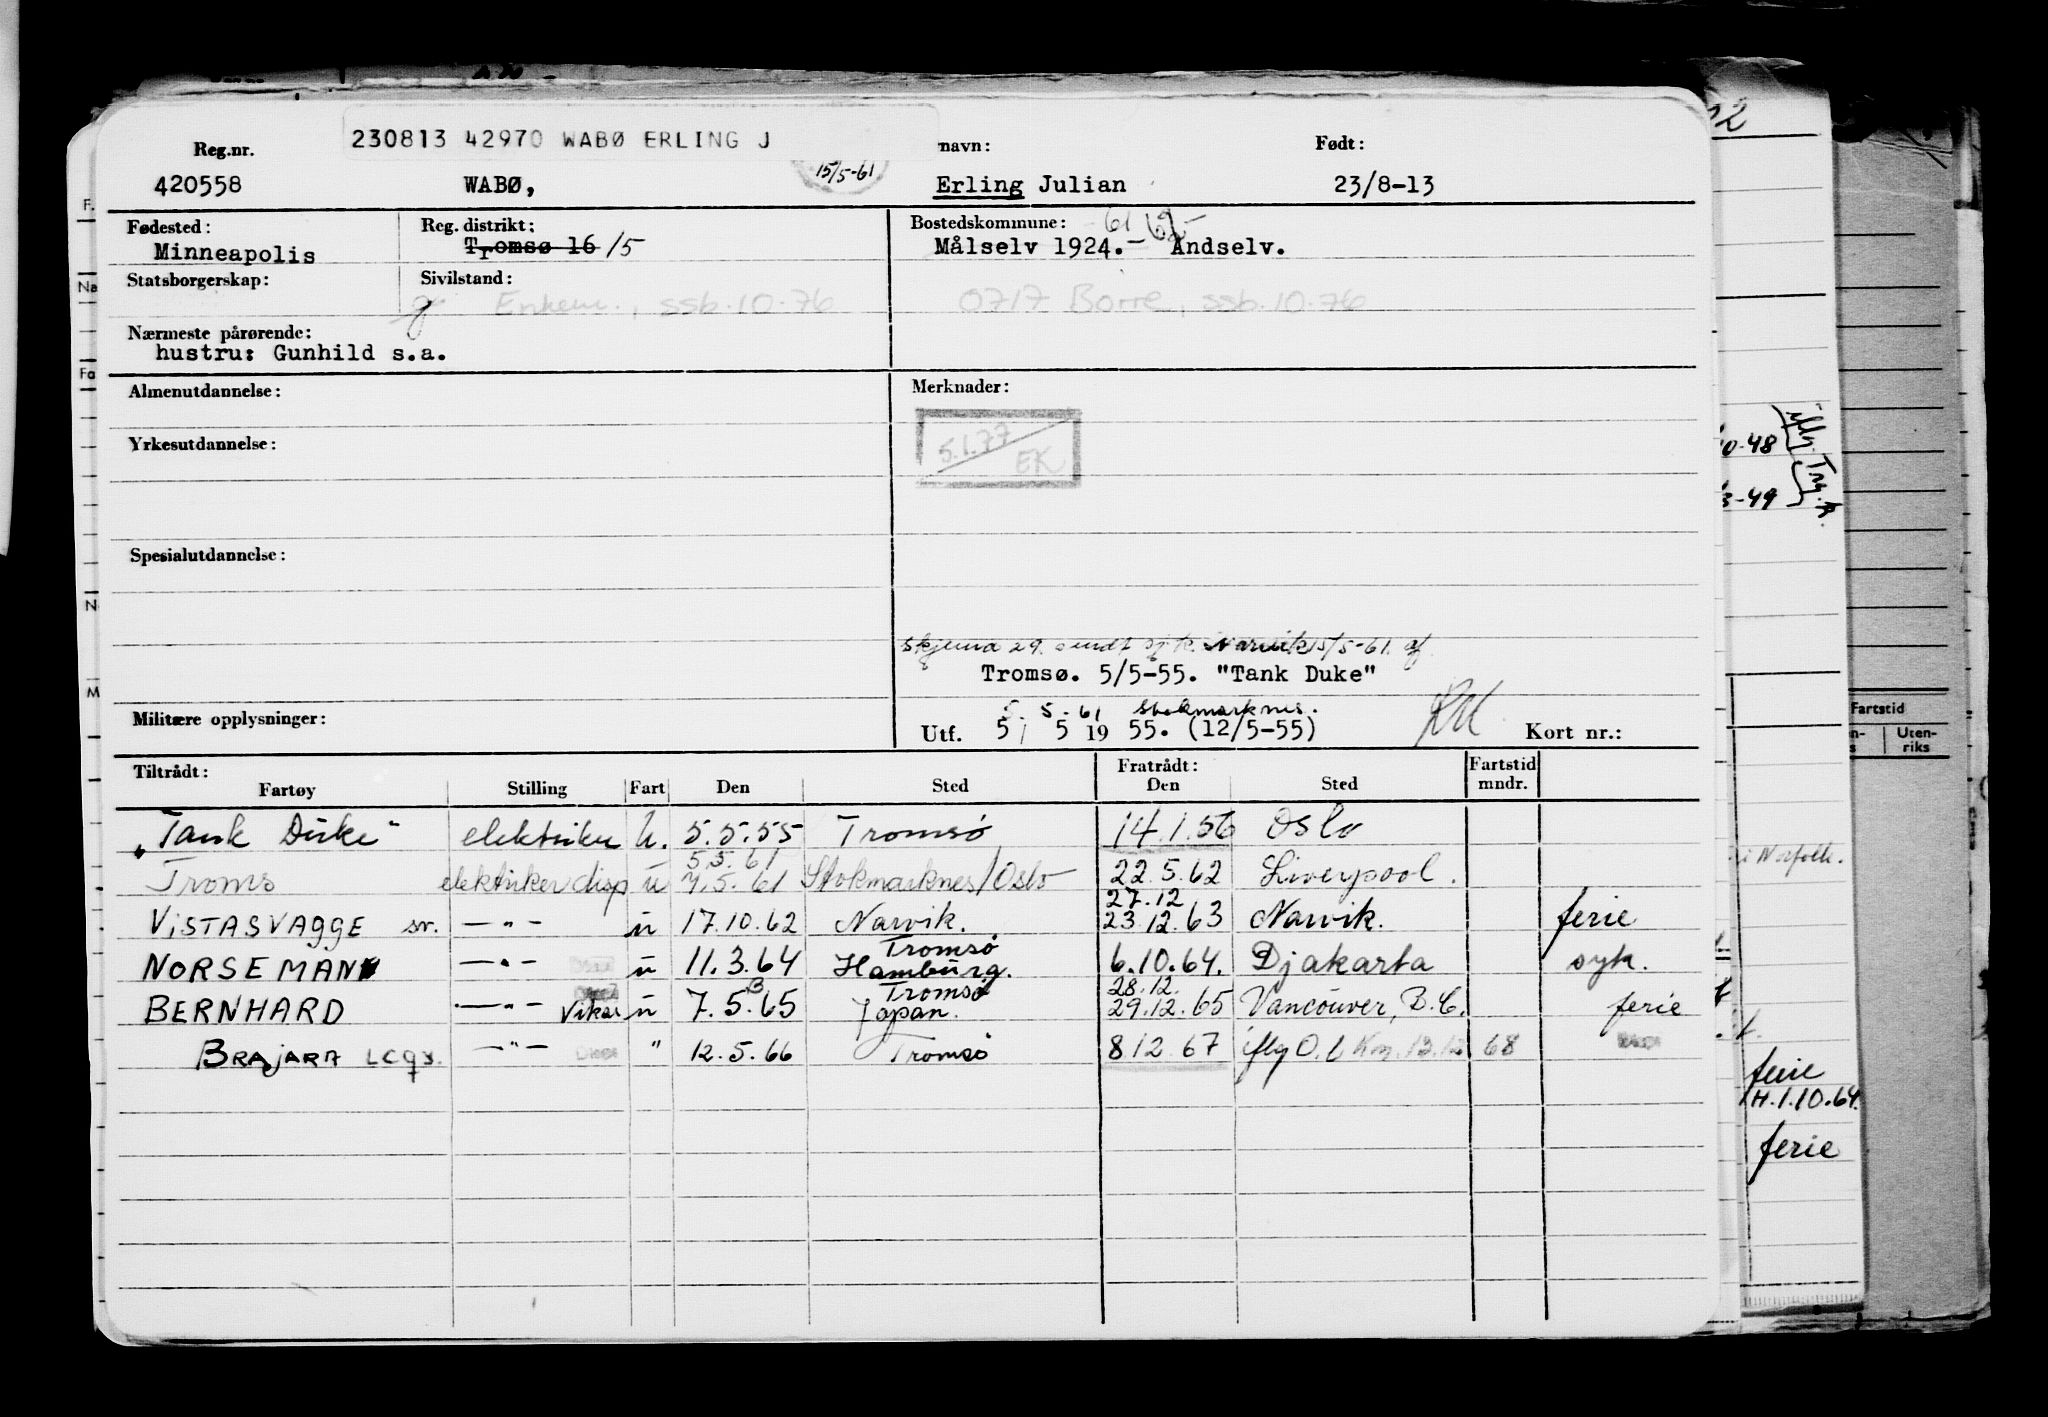 230813 42970 WABØ ERLING J
Reg.nr. navn: Født:
15/5-61
420558 WABØ, Erling Julian 23/8-13
Fødested: Reg. distrikt: Bostedskommune: -61 62-
Minneapolis Tromsø 16 /5 Målselv 1924.- Andselv.
Statsborgerskap: Sivilstand:
g Enkem., ssb.10-76 0717 Borre, ssb.10-76
Nærmeste pårørende:
hustru: Gunhild s.a.
Almenutdannelse: Merknader:
5.1.77
EK
Yrkesutdannelse:
Spesialutdannelse:
skjema 29. sendt Narvik 15/5-61.
Tromsø. 5/5-55. "Tank Duke"
Militære opplysninger: 5.5-61 Stokmarknes.
Utf. 5/ 5 19 55. (12/5-55) Kort nr.:
Tiltrådt: Fratrådt: Fartstid
Fartøy Stilling Fart Den Sted Den Sted mndr.
"Tank Duke" elektriker U. 5.5.55 Tromsø 14.1.56 Oslo
5.5.61
Troms elektriker disp u 7.5.61 Stokmarknes/Oslo 22.5.62 Liverpool.
27.12
VISTASVAGGE sv. —"— u 17.10.62 Narvik. 23.12.63 Narvik. ferie
Tromsø
NORSEMAN —"— u 11.3.64 Hamburg. 6.10.64. Djakarta syk.
Tromsø 28.12.
BERNHARD —"— Vikar u 7.5.65 Japan. 29.12.65 Vancouver, B.C. ferie
BRAJARA LCQS. —"— " 12.5.66 Tromsø 8 12 67 iflg O.l 13.12 68
0-48
3-49
iflg. Tryg.k.
Fartstid
Uten-
riks
i Norfolk.
ferie
H.1.10.64.
ferie